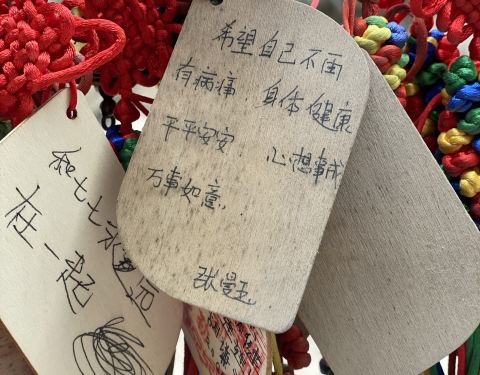 希望自己不再
有病痛. 身体健康
平平安安. 心想事成
万事如意.
和七七永远
在一起